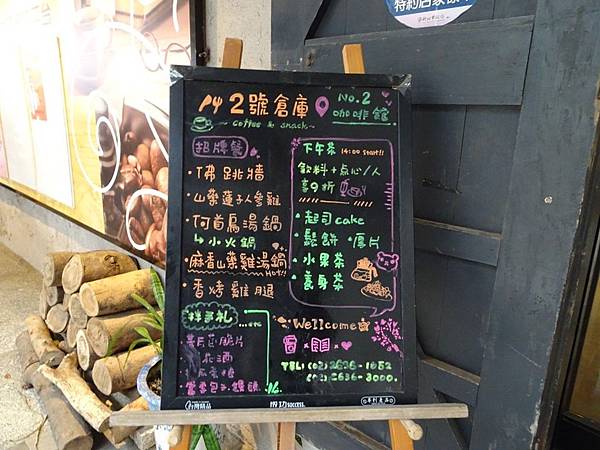 特約店家
2號倉庫
No.2
咖啡館
~ coffee & snack ~
招牌餐
・佛跳牆
・山藥蓮子人參雞
・何首烏湯鍋
↳小火鍋
・麻香山藥雞湯鍋
Hot!!
・香烤雞腿
下午茶 14:00 start!!
飲料+点心/人
享9折
・起司cake
・鬆餅・厚片
・水果茶
・養身茶
伴手礼
...etc
Wellcome
TEL: (02) 2636-1052
(02) 2636-3000.
台灣精品
成功 SUCCESS